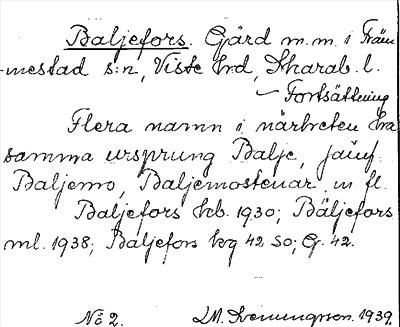 Baljefors. Gård m.m. i Främ-
mestad s:n, Viste hd, Skarab. l.
Fortsättning
Flera namn i närheten ha
samma ursprung Balje, jämf.
Baljemo, Baljemostenar m fl.
Baljefors kb. 1930; Bäljefors
ml. 1938; Baljefors kg 42 SO; G. 42.
No 2. 1939.